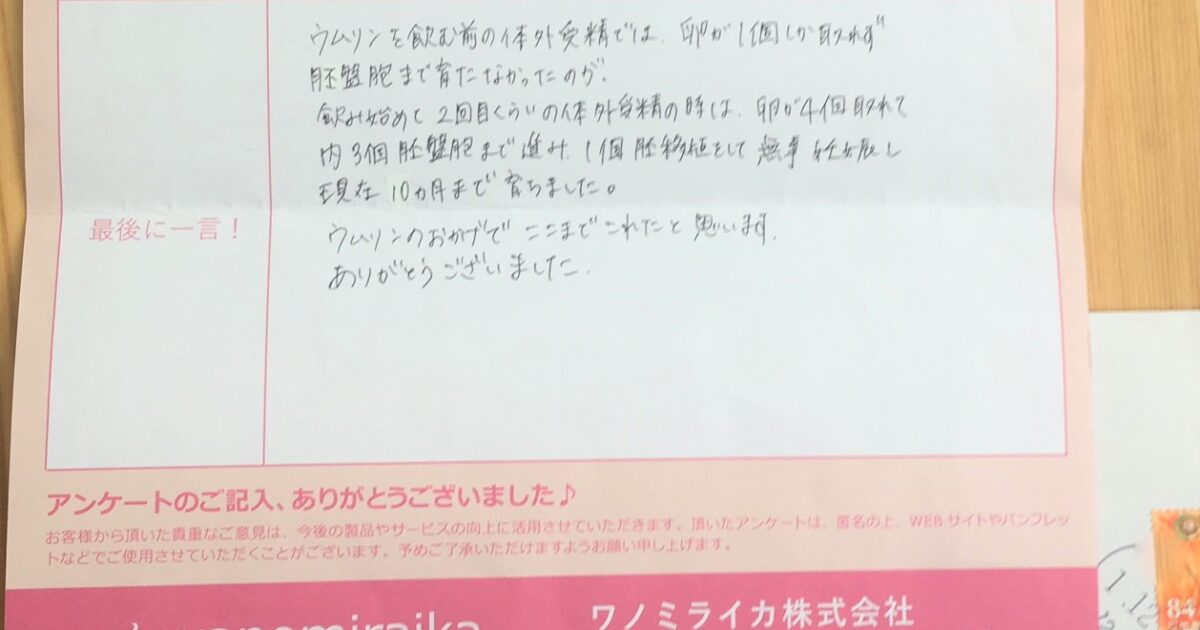 ウムリンを飲む前の体外受精では、卵が1個しか取れず
胚盤胞まで育たなかったのが、
飲み始めて2回目くらいの体外受精の時は、卵が4個取れて
内3個胚盤胞まで進み、1個胚移植をして無事妊娠し
現在10ヵ月まで育ちました。
最後に一言！
ウムリンのおかげでここまでこれたと思います。
ありがとうございました.
アンケートのご記入、ありがとうございました♪
お客様から頂いた貴重なご意見は、今後の製品やサービスの向上に活用させていただきます。頂いたアンケートは、匿名の上、WEBサイトやパンフレッ
トなどでご使用させていただくことがございます。予めご了承いただけますようお願い申し上げます。
ワノミライカ株式会社
84